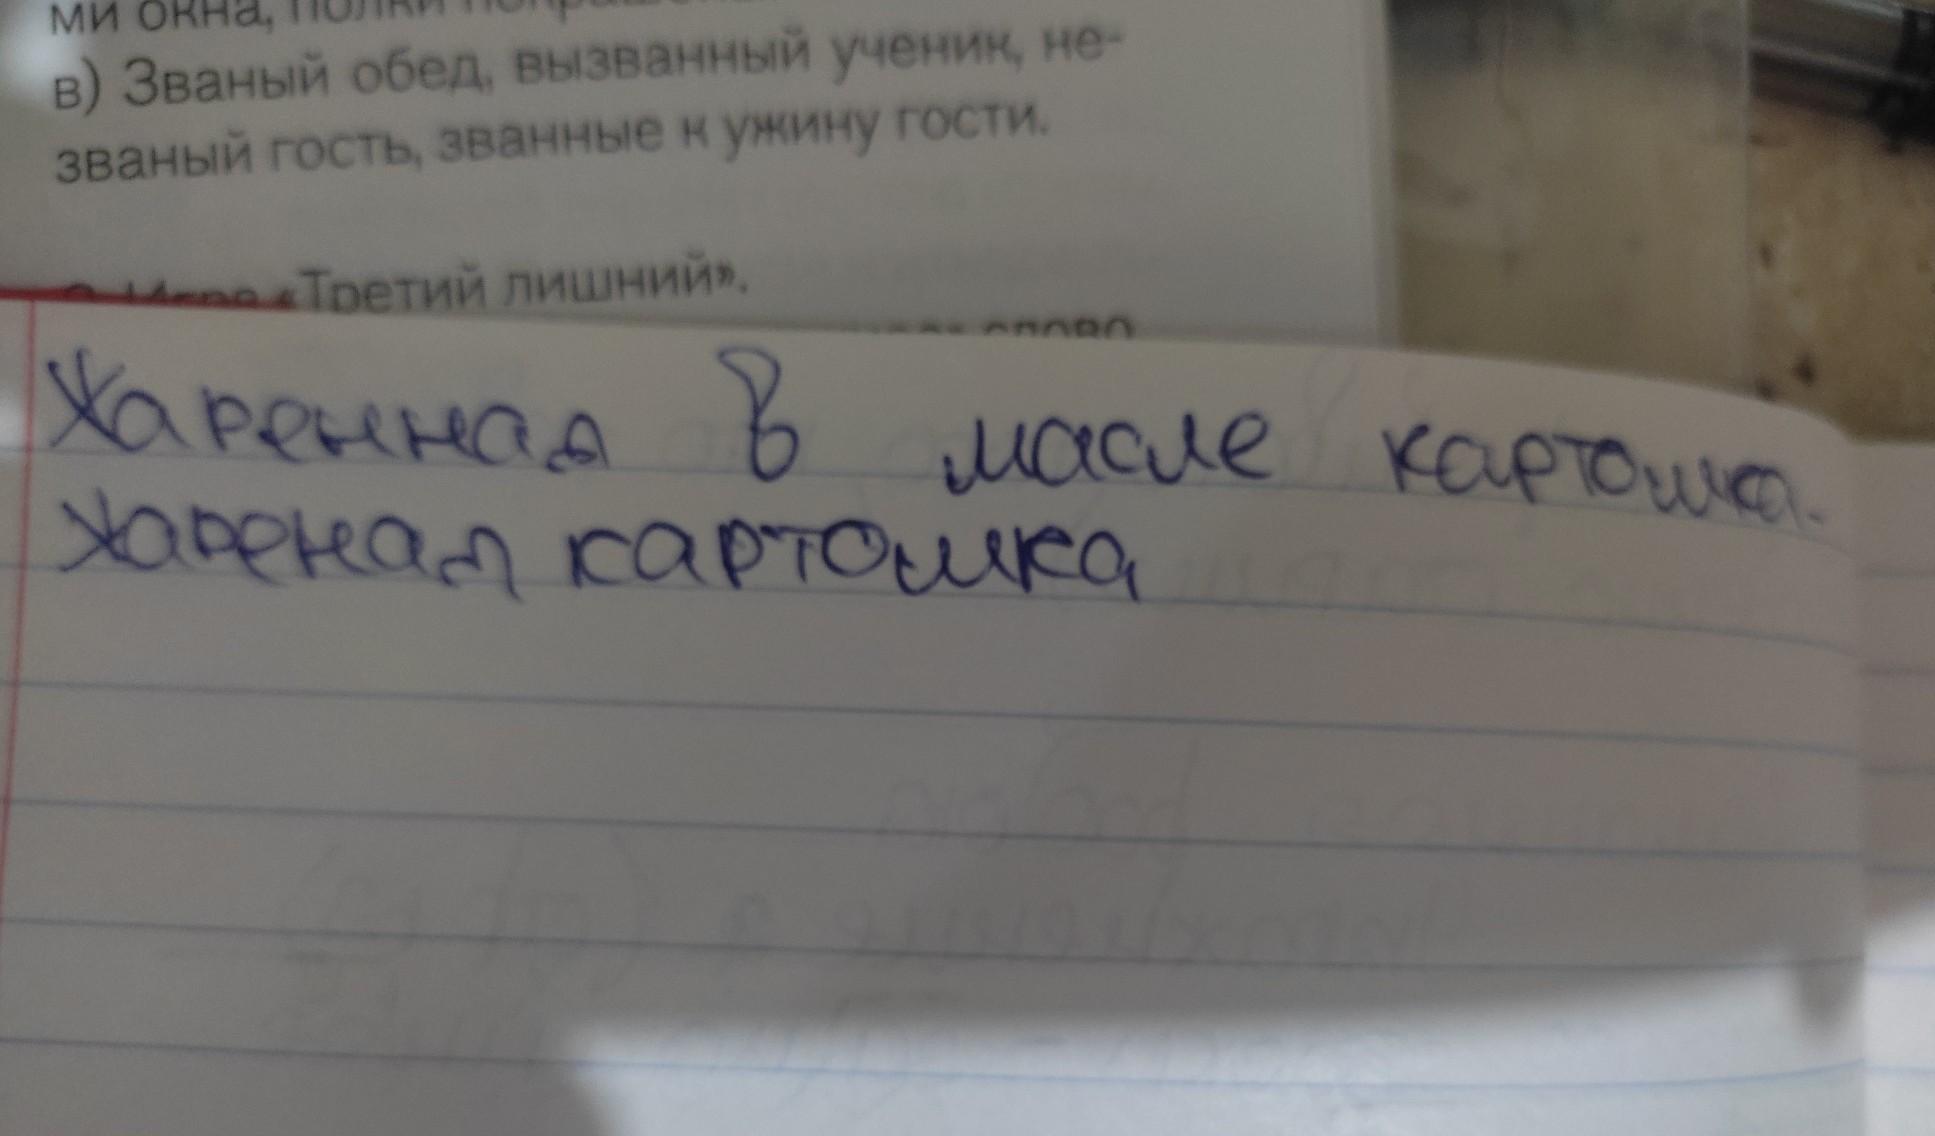 ми окна, полки
в) Званый обед, вызванный ученик, не-
званый гость, званные к ужину гости.
«Третий лишний».
слово
Жаренная в масле картошка.
жареная картошка